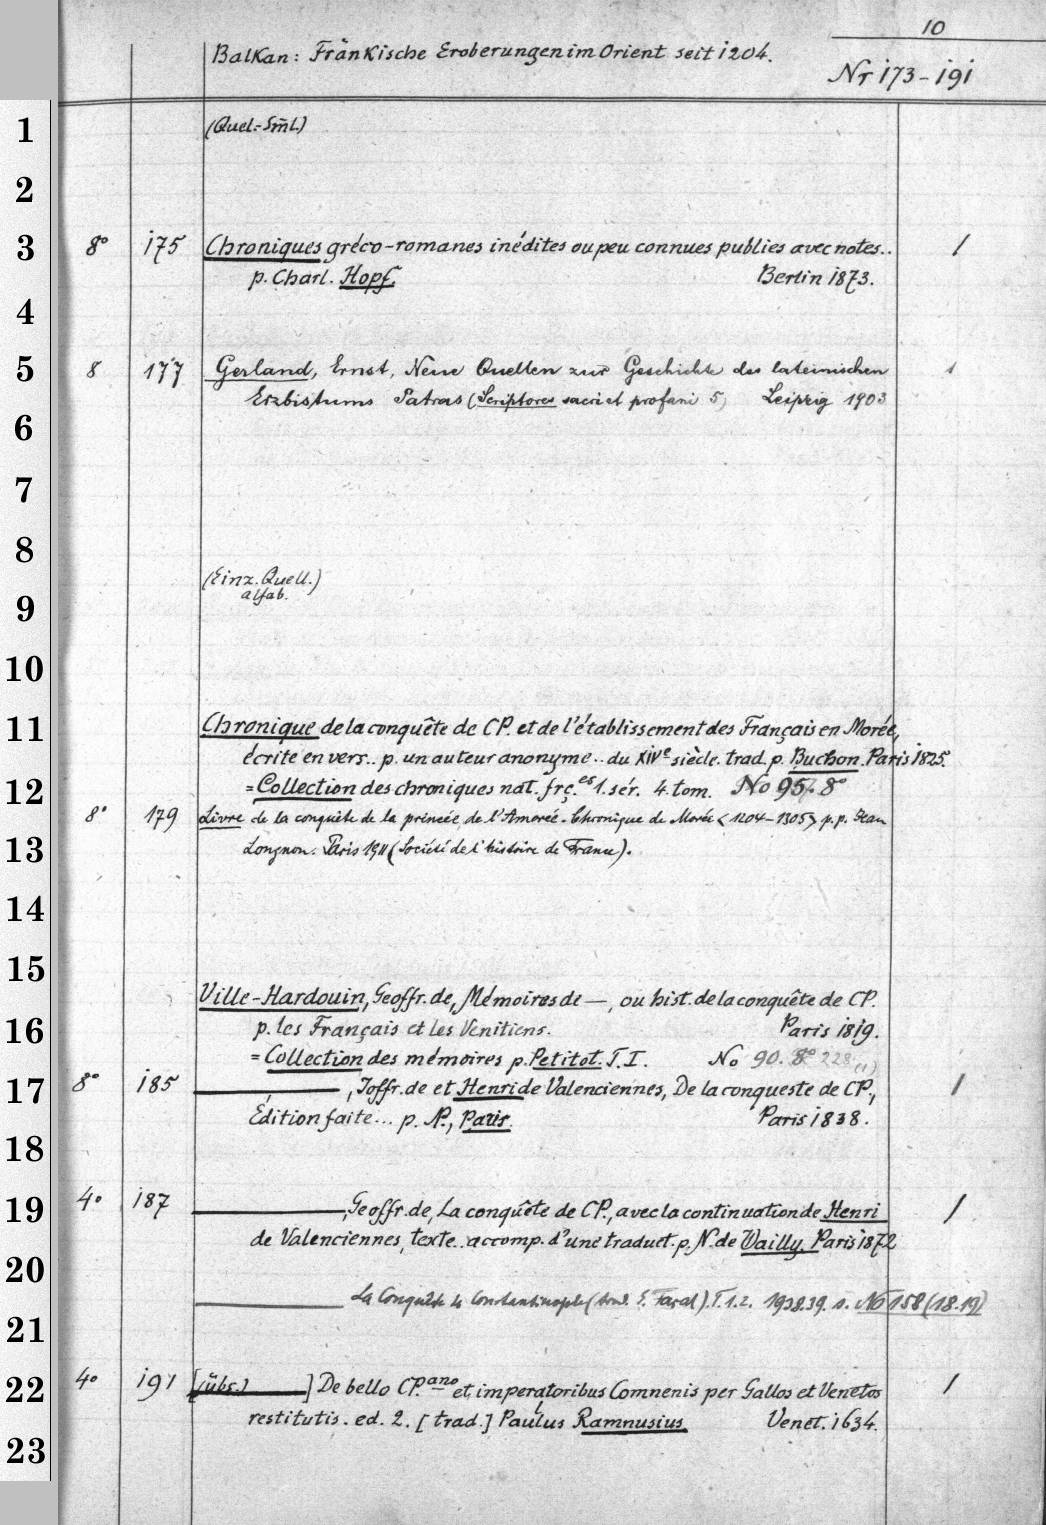 10
Balkan: Fränkische Eroberungen im Orient seit 1204.
Nr 173-191
1 (Quel.-Sm̄l.)
2
3 8° 175 Chroniques gréco-romanes inédites ou peu connues publies avec notes.. 1
p. Charl. Hopf. Berlin 1873.
4
5 8 177 Gerland, Ernst, Neue Quellen zur Geschichte des lateinischen 1
Erzbistums Patras (Scriptores sacri et profani 5) Leipzig 1903
6
7
8
(Einz. Quell.)
9 alfab.
10
11 Chronique de la conquête de CP. et de l'établissement des Français en Morée,
écrite en vers.. p. un auteur anonyme.. du XIVe siècle. trad. p. Buchon. Paris 1825.
12 = Collection des chroniques nat. frç.es 1. sér. 4. tom. No 95. 8°
8° 179 Livre de la conquête de la princée de l'Amorée. Chronique de Morée <1204-1305> p.p. Jean
13 Longnon. Paris 1911 (Société de l'histoire de France).
14
15
Ville-Hardouin, Geoffr. de, Mémoires de —, ou hist. de la conquête de CP.
16 p. les Français et les Venitiens. Paris 1819.
= Collection des mémoires p. Petitot. T. I. No 90. 8° 228 (1)
17 8° 185 ———, Joffr. de et Henri de Valenciennes, De la conqueste de CP., 1
Édition faite... p. P., Paris. Paris 1838.
18
19 4° 187 ———, Geoffr. de, La conquête de CP., avec la continuation de Henri 1
de Valenciennes, texte.. accomp. d'une traduct. p. N. de Wailly. Paris 1872
20
——— La Conquête de Constantinople ( E. Faral). T. 1.2. 1938.39. s. No 158 (18.19)
21
22 4° 191 [(übs.) ———] De bello CP.ano et imperatoribus Comnenis per Gallos et Venetos 1
restitutis. ed. 2. [trad.] Paulus Ramnusius Venet. 1634.
23